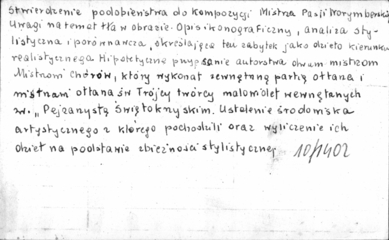 Stwierdzenie podobieństwa do kompozycji Mistrza Pasji Norymberskiej
Uwagi na temat tła w obrazie. Opis ikonograficzny, analiza sty-
listyczna i porównawcza, określająca ten zabytek jako dzieło kierunku
realistycznego. Hipotetyczne przypisanie autorstwa dwum mistrzom
Mistrzowi Chórów, który wykonał zewnętrzną partię ołtarza i
mistrzowi ołtarza Św Trójcy twórcy malowideł wewnętrznych
zw. "Pejzażystą Świętokrzyskim. Ustalenie środowiska
artystycznego z którego pochodzili oraz wyliczenie ich
dzieł na podstawie zbieżności stylistycznej